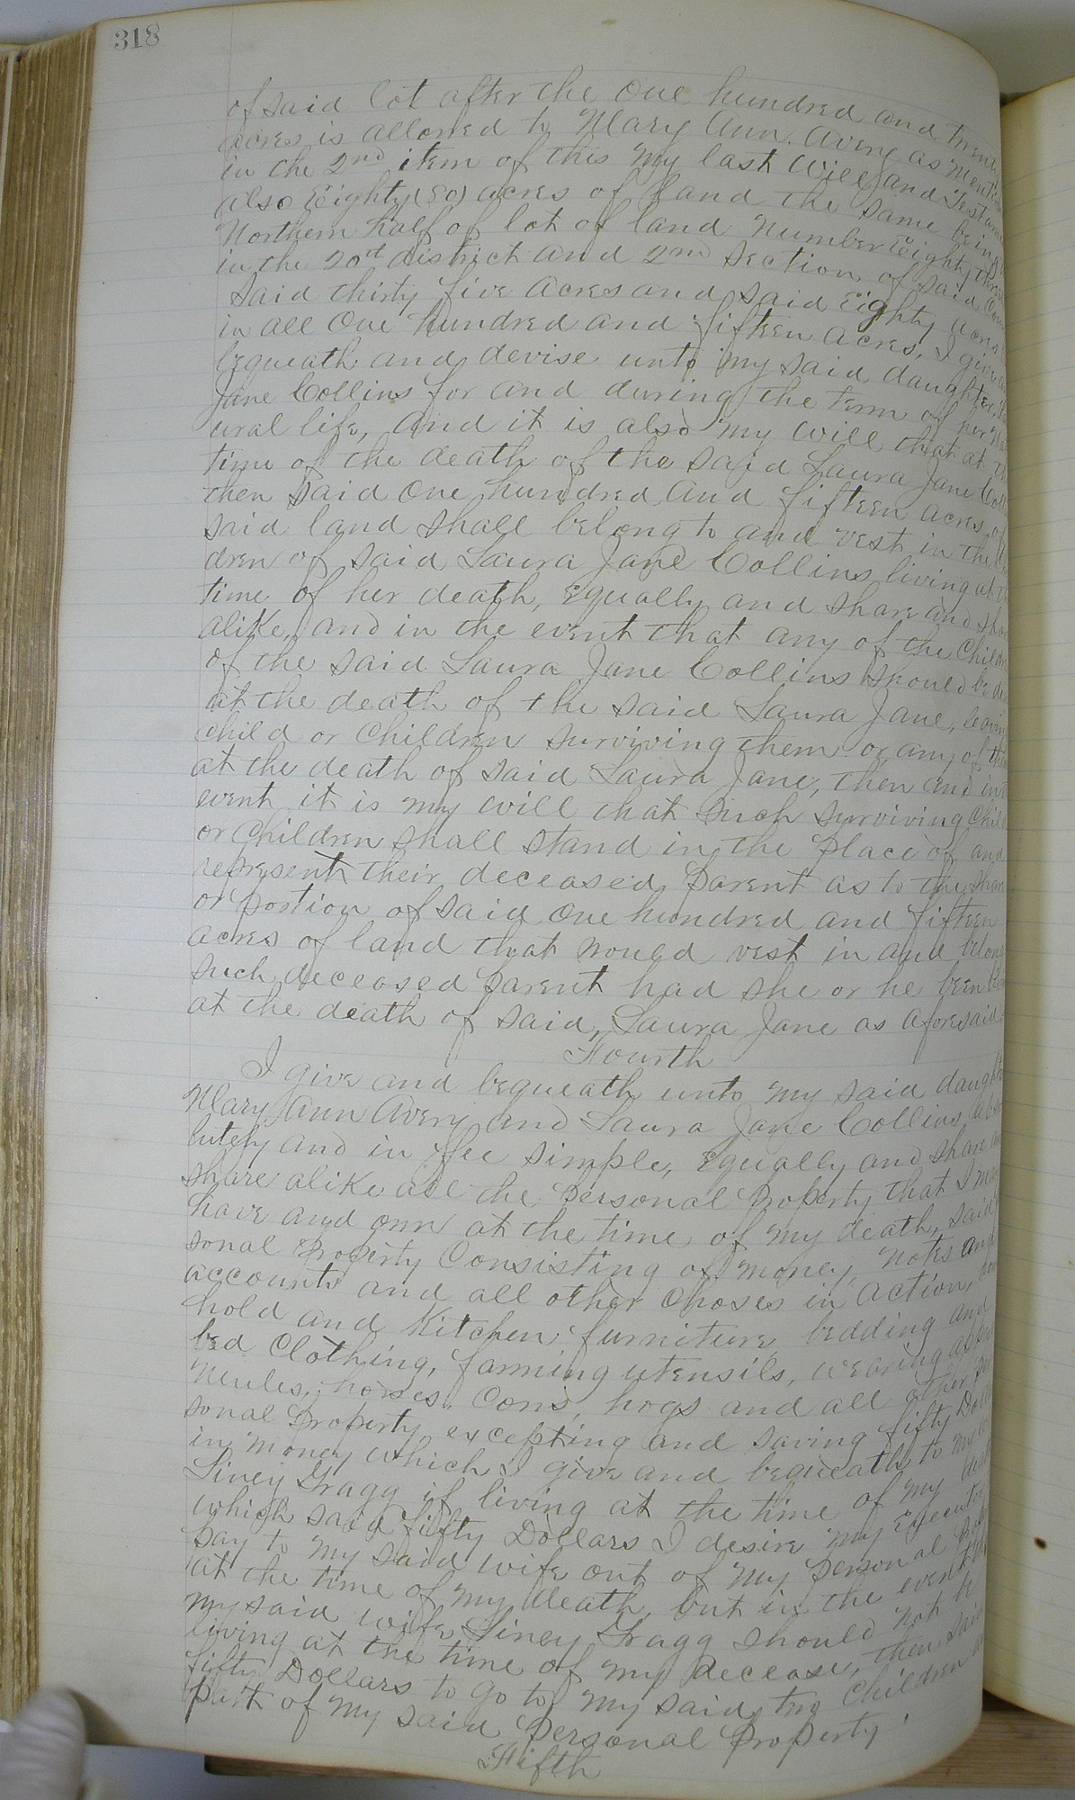 318
of said lot after the One hundred and twenty
acres is allowed to Mary Ann Avery as mentio
in the 2nd item of this my last Will and Testame
also Eighty (80) acres of land the same being
Northern half of lot of land Number Eighty three
in the 20st district and 2nd Section of said Cou
Said thirty five acres and said Eighty acres
in all One hundred and fifteen acres, I give
bequeath and devise unto my said daughter,
Jane Collins for and during the term of her nat
ural life, and it is also my will that at the
time of the death of the said Laura Jane Coll
then said One hundred and fifteen acres of
said land shall belong to and vest in the
dren of said Laura Jane Collins living at the
time of her death, Equally and share and shar
alike, and in the event that any of the Childr
of the said Laura Jane Collins should be de
at the death of the said Laura Jane, leaving
child or Children surviving them or any of them
at the death of said Laura Jane, then and in
event it is my will that such surviving Child
or Children shall stand in the place of and
represent their deceased parent as to the share
or portion of said One hundred and fifteen
acres of land that would vest in and belong
such deceased parent had she or he been
at the death of said Laura Jane as aforesaid
Fourth
I give and bequeath unto my said daught
Mary Ann Avery and Laura Jane Collins abso
lutely and in fee simple, Equally and share
share alike all the Personal Property that I may
have and own at the time of my death, said
sonal Property Consisting of money, Notes and
accounts and all other Choses in action,
hold and Kitchen furniture, bedding and
bed Clothing, farming utensils, wearing
Mules, horses, Cows, hogs and all other
sonal Property excepting and saving fifty Doll
in money which I give and bequeath to my
Siney Gragg if living at the time of my
which said fifty Dollars I desire my Executor
pay to my said wife out of my personal
at the time of my death, but in the event
my said wife, Siney Gragg should not be
living at the time of my decease, then said
fifty Dollars to go to my said two Children
part of my said Personal Property.
Fifth